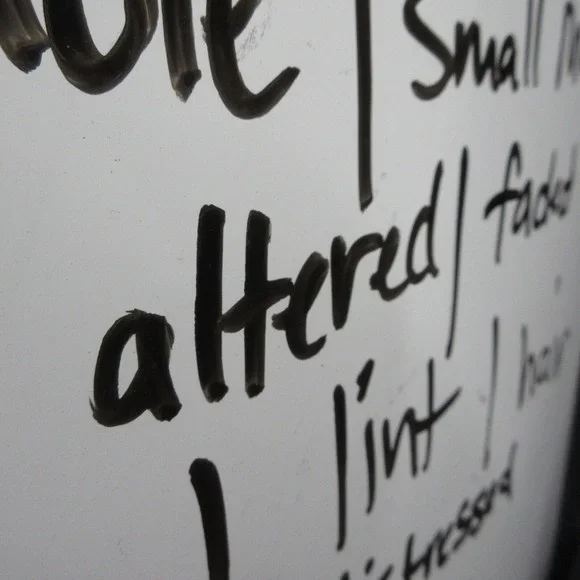 | Small
altered / faded
lint / hair
distressed